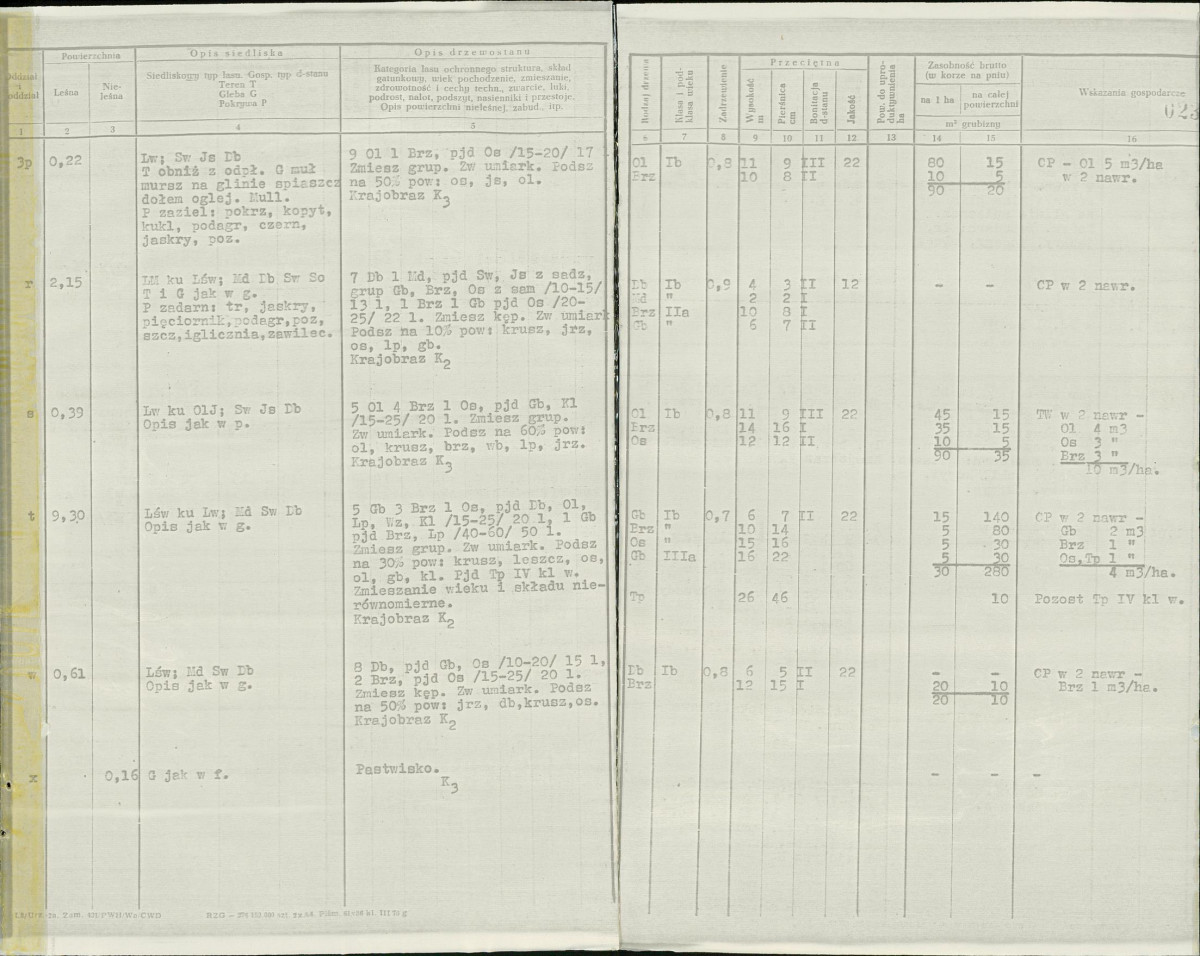 Powierzchnia
Opis siedliska
Opis drzewostanu
Oddział i oddział
Leśna
Nie-leśna
Siedliskowy typ lasu. Gosp. typ d-stanu
Teren T
Gleba G
Pokrywa P
Kategoria lasu ochronnego struktura, skład
gatunkowy, wiek pochodzenie, zmieszanie,
zdrowotność i cechy techn., zwarcie, luki,
podrost, nalot, podszyt, nasienniki i przestoje.
Opis powierzchni nieleśnej, zabud., itp.
1 2 3 4 5
3p 0,22
Lw; Sw Js Db
T obniż z odpł. G muł
mursz na glinie spiaszcz
dołem oglej. Mull.
P zaziel: pokrz, kopyt,
kukl, podagr, czern,
jaskry, poz.
9 Ol 1 Brz, pjd Os /15-20/ 17
Zmiesz grup. Zw umiark. Podsz
na 50% pow: os, js, ol.
Krajobraz K3
r 2,15
LM ku Lśw; Md Db Sw So
T i G jak w g.
P zadarn: tr, jaskry,
pięciornik,podagr,poz,
szcz,iglicznia,zawilec.
7 Db 1 Md, pjd Sw, Js z sadz,
grup Gb, Brz, Os z sam /10-15/
13 l, 1 Brz 1 Gb pjd Os /20-
25/ 22 l. Zmiesz kęp. Zw umiark
Podsz na 10% pow: krusz, jrz,
os, lp, gb.
Krajobraz K2
s 0,39
Lw ku OlJ; Sw Js Db
Opis jak w p.
5 Ol 4 Brz 1 Os, pjd Gb, Kl
/15-25/ 20 l. Zmiesz grup.
Zw umiark. Podsz na 60% pow:
ol, krusz, brz, wb, lp, jrz.
Krajobraz K3
t 9,30
Lśw ku Lw; Md Sw Db
Opis jak w g.
5 Gb 3 Brz 1 Os, pjd Db, Ol,
Lp, Wz, Kl /15-25/ 20 l, 1 Gb
pjd Brz, Lp /40-60/ 50 l.
Zmiesz grup. Zw umiark. Podsz
na 30% pow: krusz, leszcz, os,
ol, gb, kl. Pjd Tp IV kl w.
Zmieszanie wieku i składu nie-
równomierne.
Krajobraz K2
w 0,61
Lśw; Md Sw Db
Opis jak w g.
8 Db, pjd Gb, Os /10-20/ 15 l,
2 Brz, pjd Os /15-25/ 20 l.
Zmiesz kęp. Zw umiark. Podsz
na 50% pow: jrz, db,krusz,os.
Krajobraz K2
x 0,16 G jak w f.
Pastwisko.
K3
Rodzaj drzewa
Klasa i pod-klasa wieku
Zadrzewienie
Przeciętna
Wysokość m
Pierśnica cm
Bonitacja d-stanu
Jakość
Pow. do upro-duktywnienia ha
Zasobność brutto
(w korze na pniu)
na 1 ha
na całej powierzchni
m³ grubizny
Wskazania gospodarcze
023
6 7 8 9 10 11 12 13 14 15 16
Ol Ib 0,8 11 9 III 22 80 15 CP - Ol 5 m3/ha
Brz 10 8 II 10 5 w 2 nawr.
90 20
Db Ib 0,9 4 3 II 12 - - CP w 2 nawr.
Md " 2 2 I
Brz IIa 10 8 I
Gb " 6 7 II
Ol Ib 0,8 11 9 III 22 45 15 TW w 2 nawr -
Brz 14 16 I 35 15 Ol 4 m3
Os 12 12 II 10 5 Os 3 "
90 35 Brz 3 "
10 m3/ha.
Gb Ib 0,7 6 7 II 22 15 140 CP w 2 nawr -
Brz " 10 14 5 80 Gb 2 m3
Os " 15 16 5 30 Brz 1 "
Gb IIIa 16 22 5 30 Os,Tp 1 "
30 280 4 m3/ha.
Tp 26 46 10 Pozost Tp IV kl w.
Db Ib 0,8 6 5 II 22 - - CP w 2 nawr -
Brz 12 15 I 20 10 Brz 1 m3/ha.
20 10
- - -